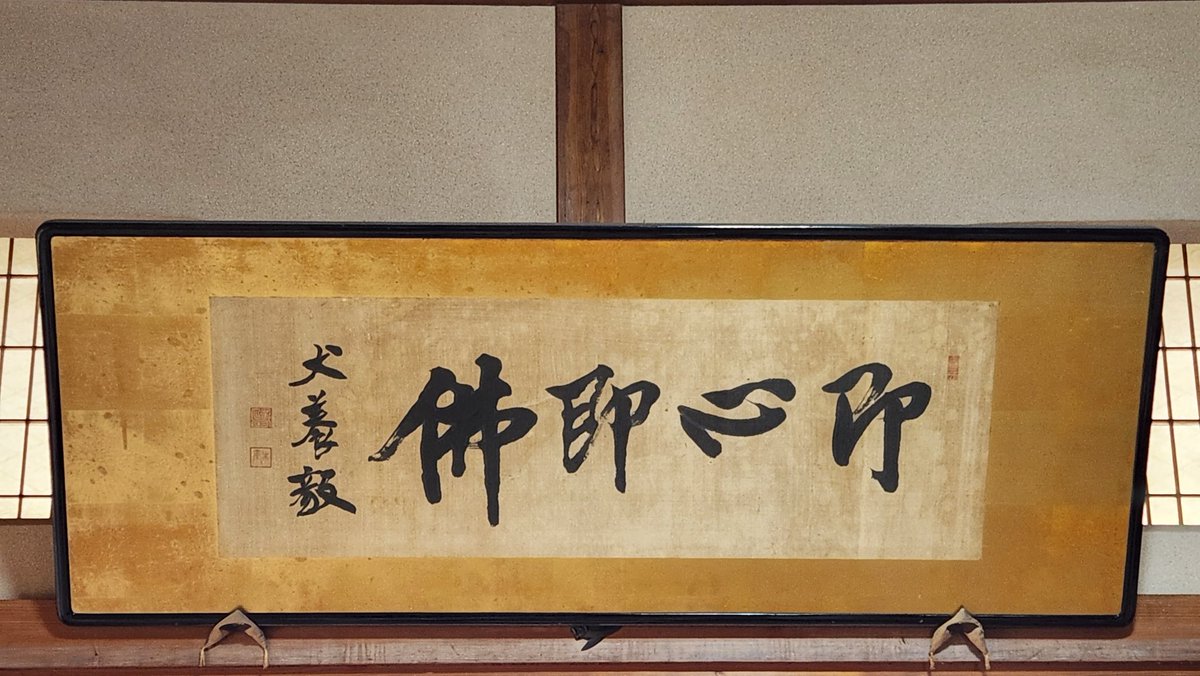 即心即佛
犬養毅